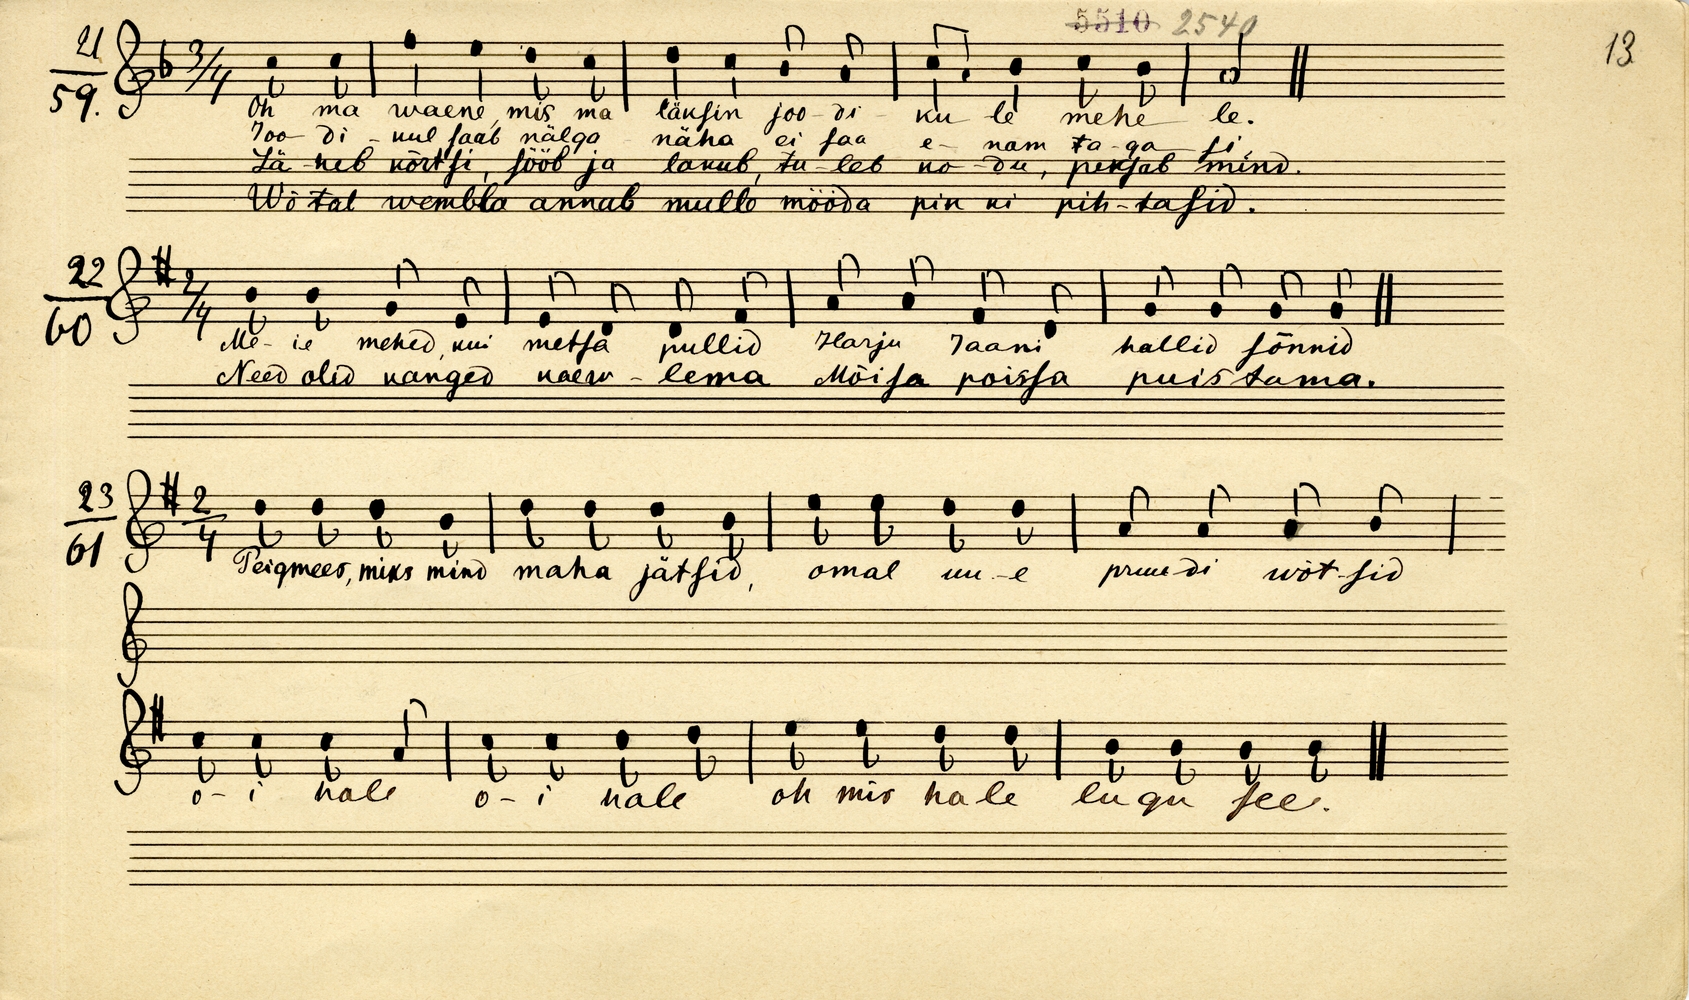 5510 2540
13
21
59.
3/4
Oh ma waene, mis ma läksin joo-di-ku le mehe le.
Joo-di-kul saab nälga näha ei saa e-nam ta-ga si,
Lä-heb kõrtsi, sööb ja lakub, tu-leb ko-du, peksab mind.
Wõtab wembla annab mulle mööda pin ni pih-tasid.
22
60
2/4
Me-ie mehed, kui metsa pullid Harju Jaani hallid sõnnid
Need olid kanged kaew-lema Mõisa poissa puistama.
23
61
2
4
Peigmees, miks mind maha jätsid, omal uu-e pruu-di wõt-sid
o-i hale o-i hale oh mis hale lugu see.